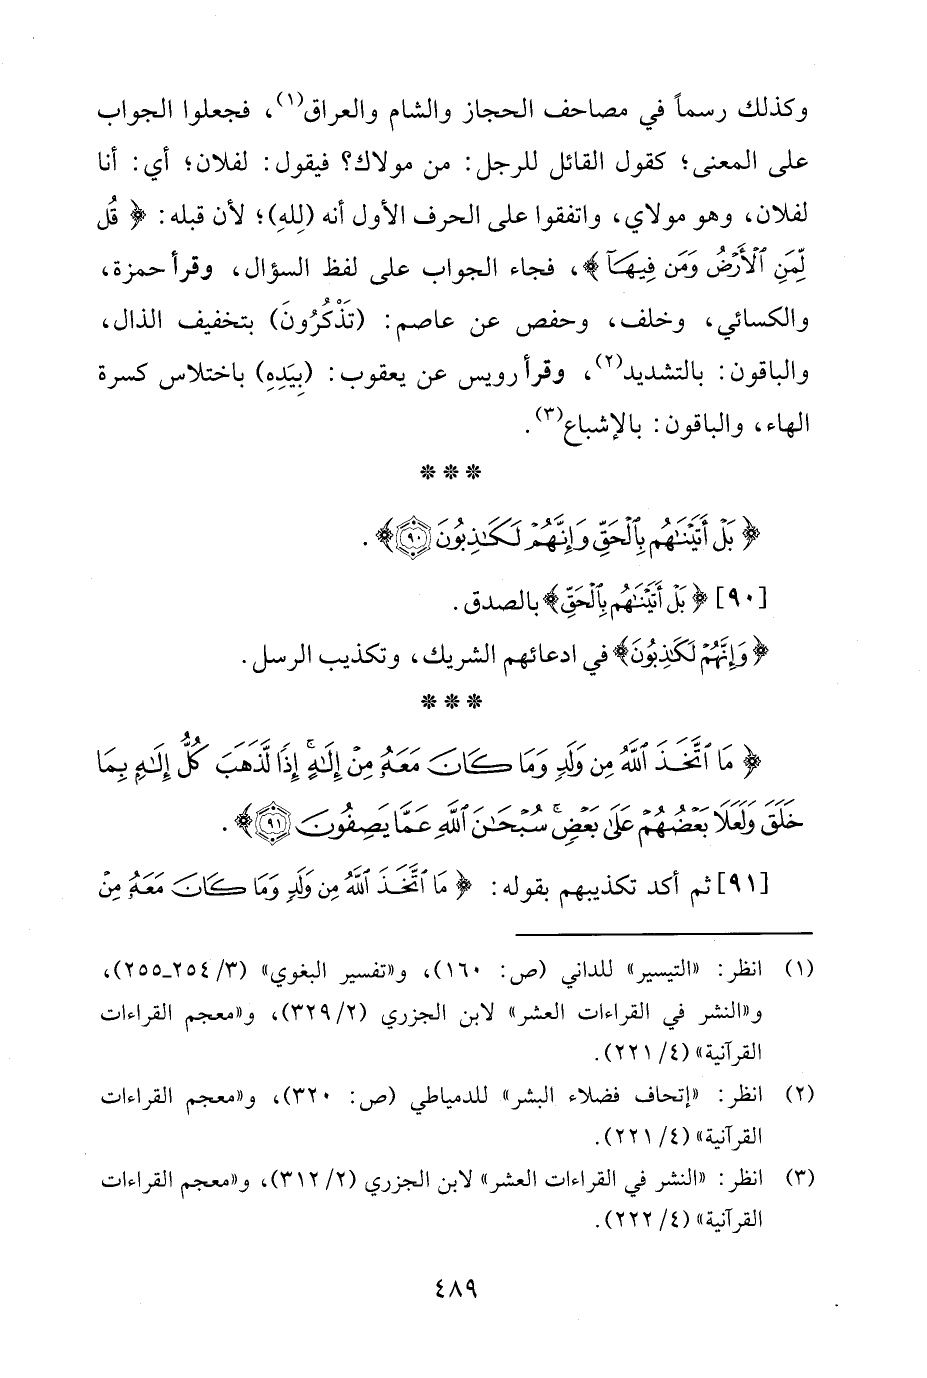 وكذلك رسماً في مصاحف الحجاز والشام والعراق(١)، فجعلوا الجواب
على المعنى؛ كقول القائل للرجل: من مولاك؟ فيقول: لفلان؛ أي: أنا
لفلان، وهو مولاي، واتفقوا على الحرف الأول أنه (لِلهِ)؛ لأن قبله: ﴿ قُل
لِّمَنِ ٱلْأَرْضُ وَمَن فِيهَآ ﴾، فجاء الجواب على لفظ السؤال، وقرأ حمزة،
والكسائي، وخلف، وحفص عن عاصم: (تَذْكُرُونَ) بتخفيف الذال،
والباقون: بالتشديد(٢)، وقرأ رويس عن يعقوب: (بِيَدِهِ) باختلاس كسرة
الهاء، والباقون: بالإشباع(٣).
***
﴿ بَلْ أَتَيْنَٰهُم بِٱلْحَقِّ وَإِنَّهُمْ لَكَٰذِبُونَ ٩٠ ﴾.
[٩٠] ﴿ بَلْ أَتَيْنَٰهُم بِٱلْحَقِّ ﴾ بالصدق.
﴿ وَإِنَّهُمْ لَكَٰذِبُونَ ﴾ في ادعائهم الشريك، وتكذيب الرسل.
***
﴿ مَا ٱتَّخَذَ ٱللَّهُ مِن وَلَدٍ وَمَا كَانَ مَعَهُۥ مِنْ إِلَٰهٍ ۚ إِذًا لَّذَهَبَ كُلُّ إِلَٰهٍۭ بِمَا
خَلَقَ وَلَعَلَا بَعْضُهُمْ عَلَىٰ بَعْضٍ ۚ سُبْحَٰنَ ٱللَّهِ عَمَّا يَصِفُونَ ٩١ ﴾.
[٩١] ثم أكد تكذيبهم بقوله: ﴿ مَا ٱتَّخَذَ ٱللَّهُ مِن وَلَدٍ وَمَا كَانَ مَعَهُۥ مِنْ
(١) انظر: «التيسير» للداني (ص: ١٦٠)، و«تفسير البغوي» (٣/ ٢٥٤ـ٢٥٥)،
و«النشر في القراءات العشر» لابن الجزري (٢/ ٣٢٩)، و«معجم القراءات
القرآنية» (٤/ ٢٢١).
(٢) انظر: «إتحاف فضلاء البشر» للدمياطي (ص: ٣٢٠)، و«معجم القراءات
القرآنية» (٤/ ٢٢١).
(٣) انظر: «النشر في القراءات العشر» لابن الجزري (٢/ ٣١٢)، و«معجم القراءات
القرآنية» (٤/ ٢٢٢).
٤٨٩